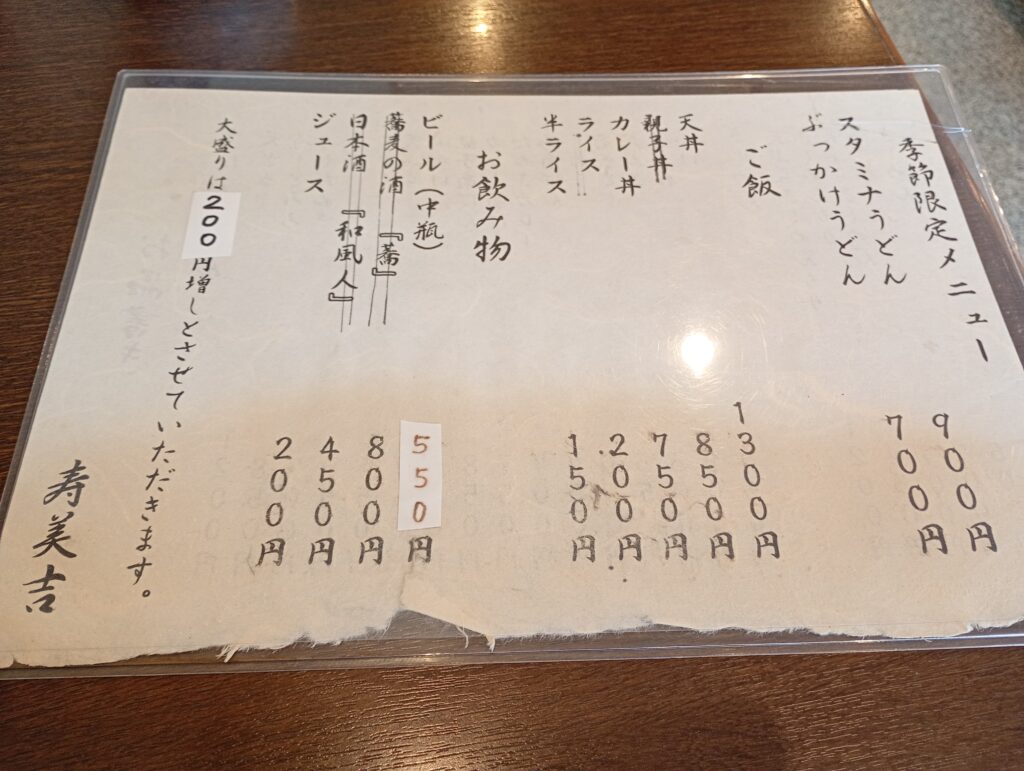 季節限定メニュー
スタミナうどん 900円
ぶっかけうどん 700円
ご飯
天丼 1300円
親子丼 850円
カレー丼 750円
ライス 200円
半ライス 150円
お飲み物
ビール（中瓶） 550円
蕎麦の酒『蕎』 800円
日本酒『和風人』 450円
ジュース 200円
大盛りは200円増しとさせていただきます。
寿美吉